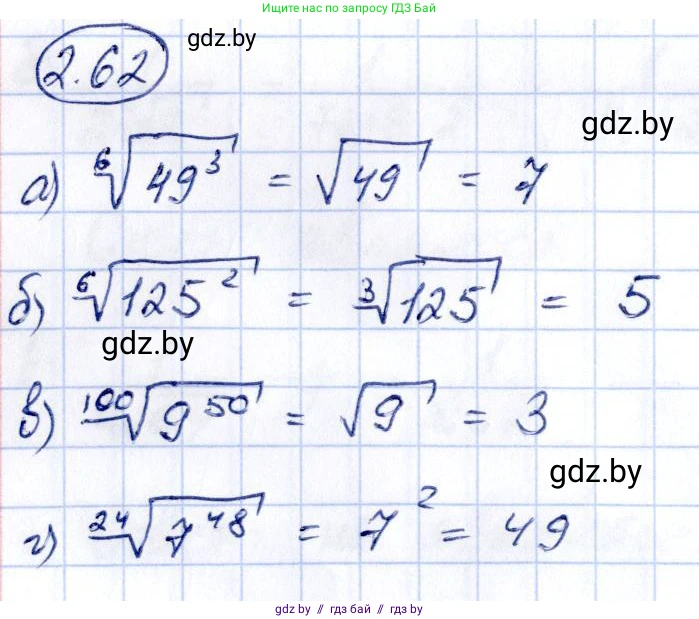 Ищите нас по запросу ГДЗ Бай
gdz.by
2.62
gdz.by
а) ⁶√49³ = √49 = 7
б) ⁶√125² = ³√125 = 5
gdz.by
в) ¹⁰⁰√9⁵⁰ = √9 = 3
gdz.by
г) ²⁴√7⁴⁸ = 7² = 49
gdz.by // гдз бай // гдз by